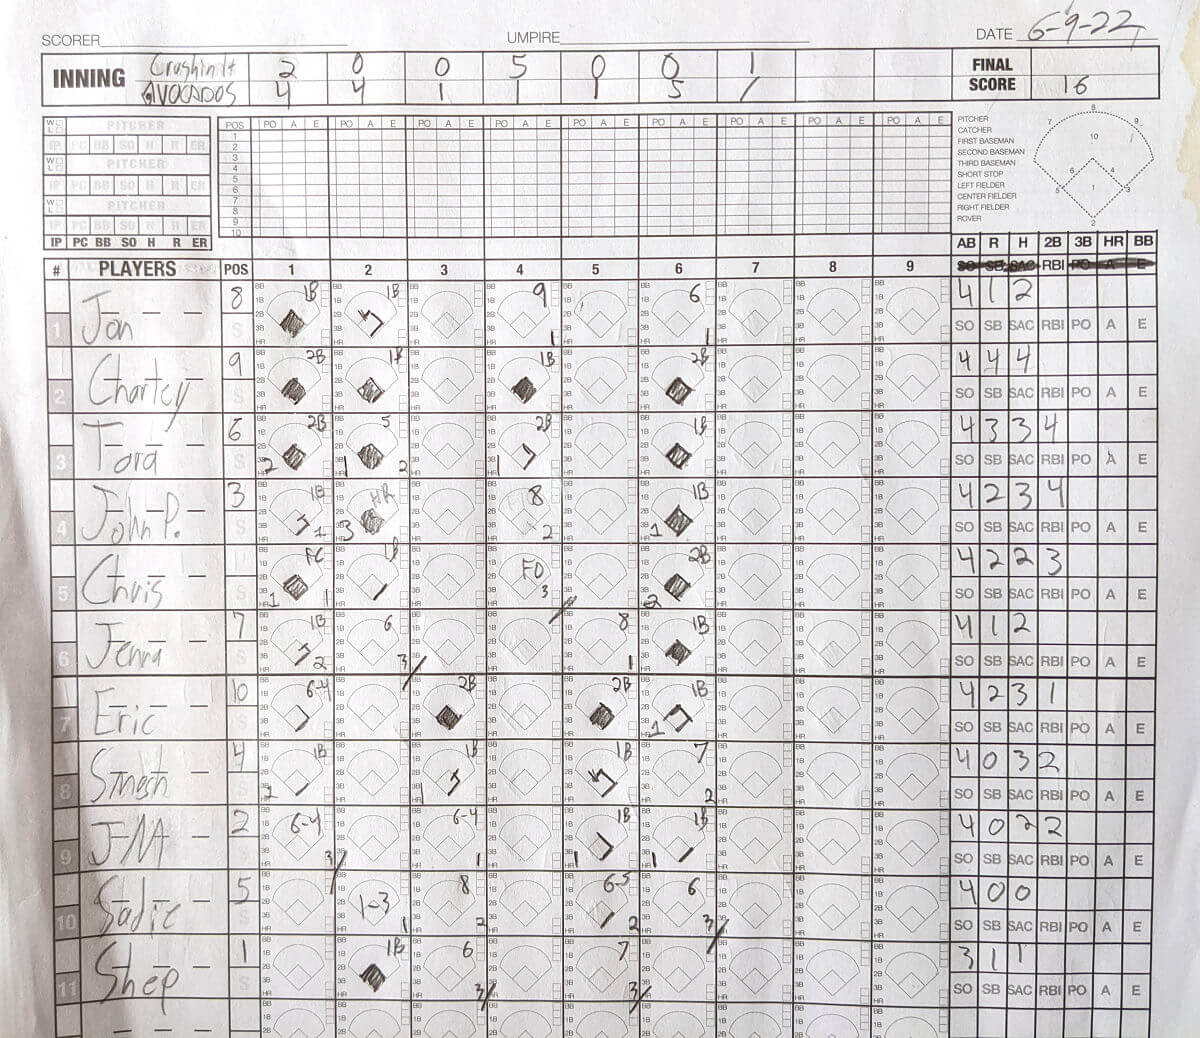 SCORER UMPIRE DATE 6-9-22
INNING Crushin It 2 0 0 5 0 0 1 FINAL
AVOCADOS 4 4 1 1 1 5 / SCORE 16
W L PITCHER POS PO A E PO A E PO A E PO A E PO A E PO A E PO A E PO A E PO A E PITCHER 8
IP PC BB SO H R ER 1 CATCHER 7 9
W L PITCHER 2 FIRST BASEMAN 10
3 SECOND BASEMAN
IP PC BB SO H R ER 4 THIRD BASEMAN
5 SHORT STOP 6 4
W L PITCHER 6 LEFT FIELDER 5 1 3
7 CENTER FIELDER
IP PC BB SO H R ER 8 RIGHT FIELDER
9 ROVER 2
IP PC BB SO H R ER 10
AB R H 2B 3B HR BB
# PLAYERS POS 1 2 3 4 5 6 7 8 9 SO SB SAC RBI PO A E
1 Jon 8 1B 1B 9 1 6 1 4 1 2
SO SB SAC RBI PO A E
2 Charley 9 2B 1B 1B 2B 4 4 4
SO SB SAC RBI PO A E
3 Tord 6 2B 2 5 1 2 2B 1 1B 4 3 3 4
SO SB SAC RBI PO A E
4 John P. 3 1B 1 HR 3 8 2 1B 1 4 2 3 4
SO SB SAC RBI PO A E
5 Chris FC 1 1 1B FO 3 2B 2 4 2 2 3
SO SB SAC RBI PO A E
6 Jenna 7 1B 2 6 3 8 1 1B 4 1 2
SO SB SAC RBI PO A E
7 Eric 10 6-4 2B 2B 1B 1 4 2 3 1
SO SB SAC RBI PO A E
8 Smash 4 1B 2 1B 1 1B 7 2 4 0 3 2
SO SB SAC RBI PO A E
9 2 6-4 3 6-4 1 1B 1 1B 1 4 0 2 2
SO SB SAC RBI PO A E
10 Sadie 5 1-3 1 8 2 6-5 2 6 3 4 0 0
SO SB SAC RBI PO A E
11 Shep 1 1B 6 3 7 3 3 1 1
SO SB SAC RBI PO A E